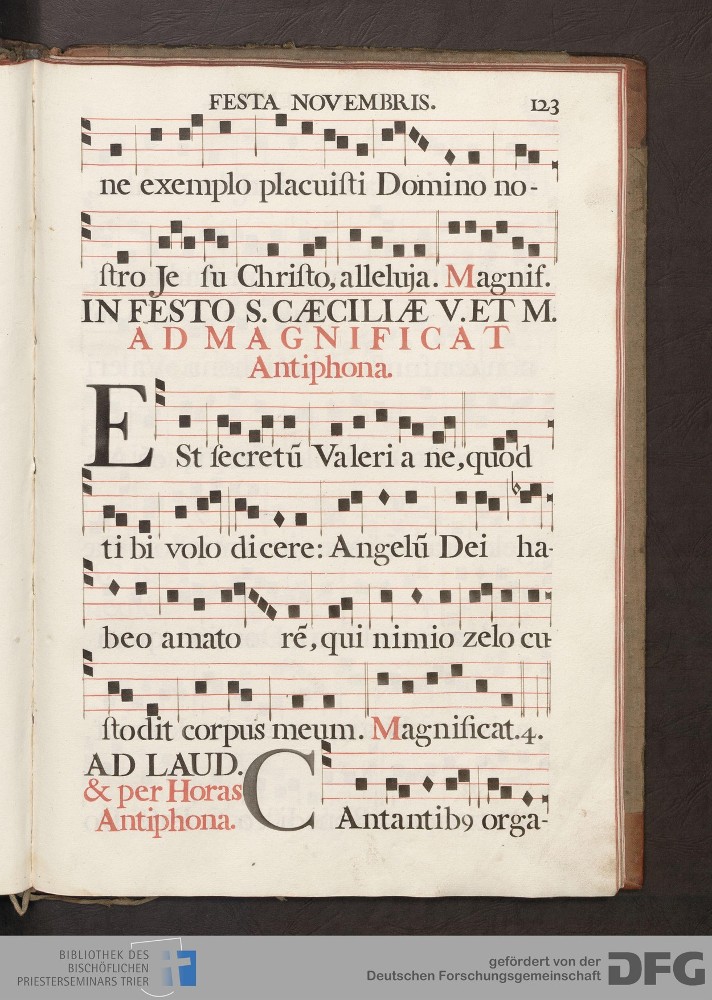 FESTA NOVEMBRIS. 123
ne exemplo placuiſti Domino no-
ſtro Je ſu Chriſto, alleluja. Magnif.
IN FESTO S. CÆCILIÆ V. ET M.
AD MAGNIFICAT
Antiphona.
ESt ſecretū Valeri a ne, quod
ti bi volo dicere: Angelū Dei ha-
beo amato rē, qui nimio zelo cu-
ſtodit corpus meum. Magnificat. 4.
AD LAUD.
& per Horas
Antiphona.
CAntantibꝰ orga-
BIBLIOTHEK DES
BISCHÖFLICHEN
PRIESTERSEMINARS TRIER
gefördert von der
Deutschen Forschungsgemeinschaft
DFG